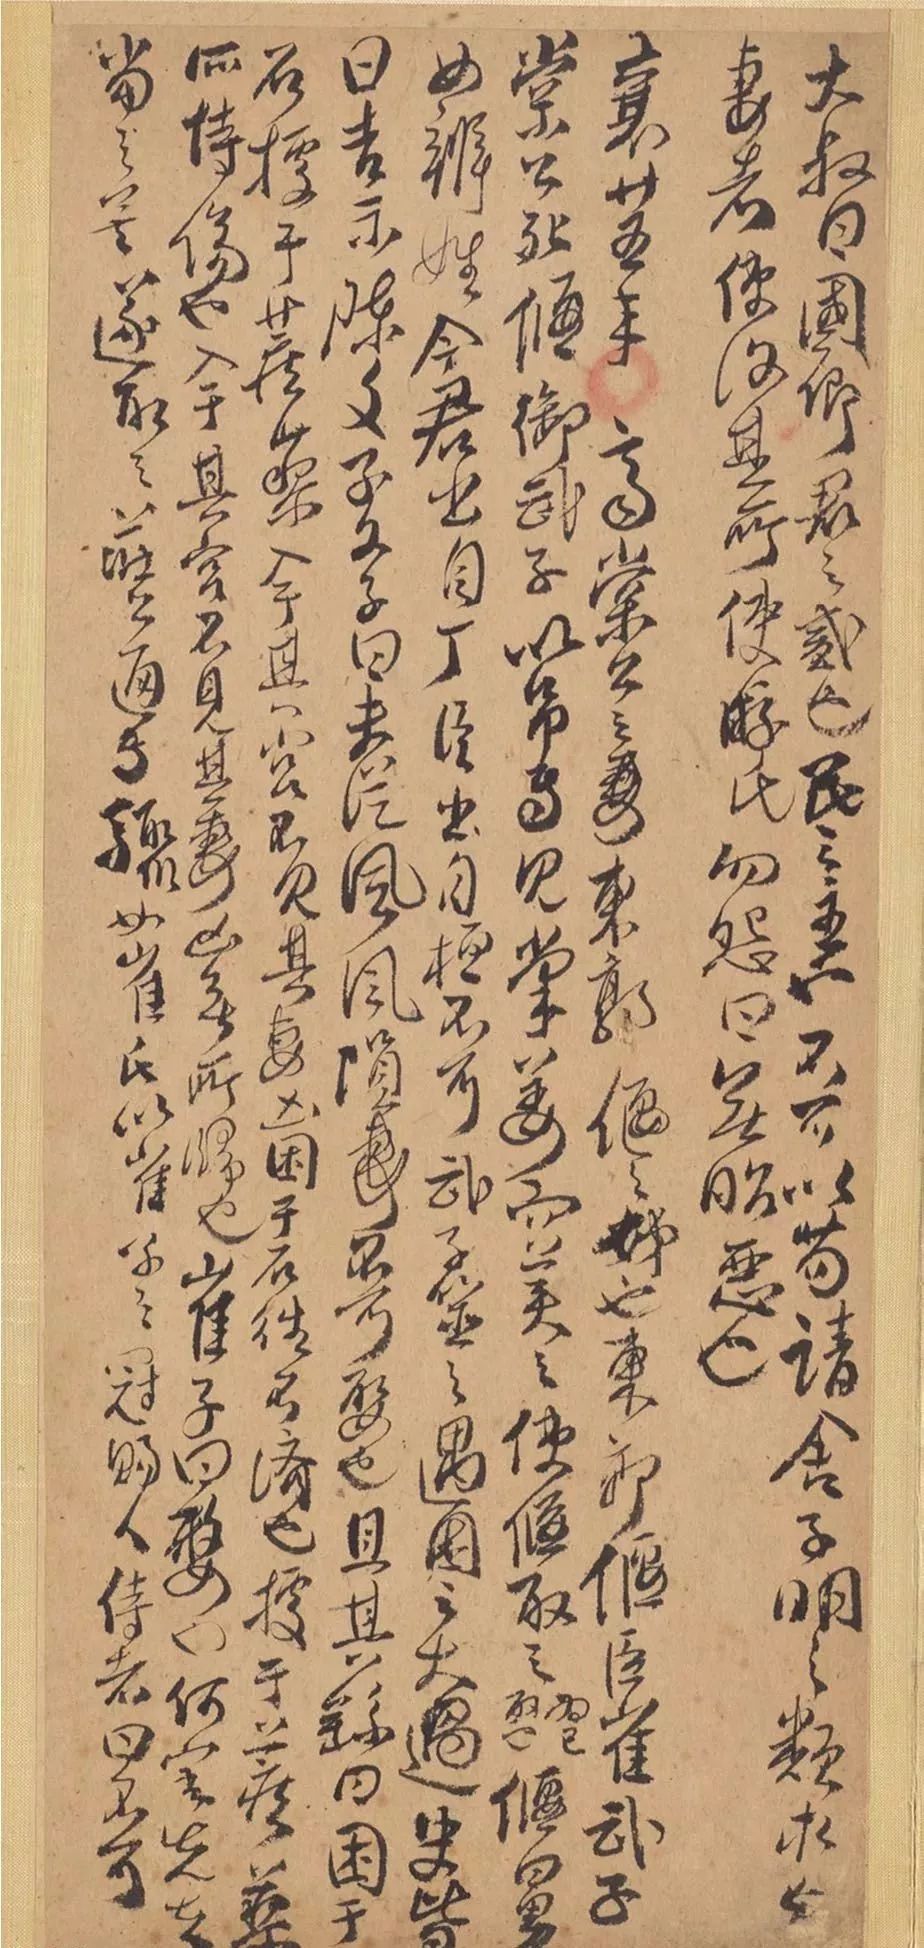 大叔曰國卿君之貳也民之主也不可以苟請舍子明之類求亡
妻者使復其所使游氏勿怨曰無昭惡也
襄廿五年齊棠公之妻東郭偃之姊也東郭偃臣崔武子
棠公死偃御武子以弔焉見棠姜而美之使偃取之偃曰男
女辨姓今君出自丁臣出自桓不可武子筮之遇困之大過史皆
曰吉示陳文子文子曰夫從風風隕妻不可娶也且其繇曰困于
石據于蒺蔾入于其宮不見其妻凶困于石往不濟也據于蒺蔾
所恃傷也入于其宮不見其妻凶無所歸也崔子曰嫠也何害先夫
當之矣遂取之莊公通焉驟如崔氏以崔子之冠賜人侍者曰不可